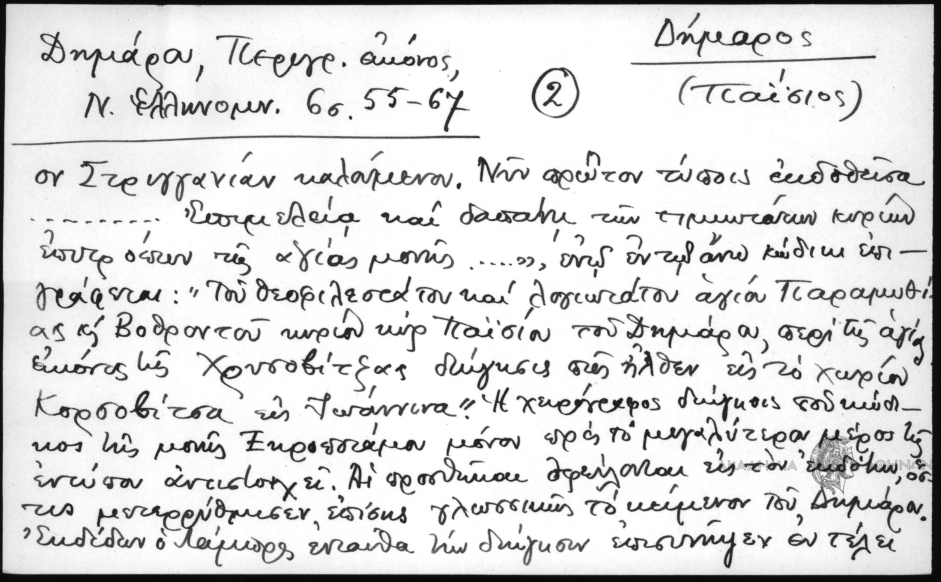 Δήμαρος
(Παΐσιος)
Δημάρου, Περιγρ. εἰκόνος,
Ν. Ἑλληνομν. 6σ. 55-67
②
ον Στρυγγανιὰν καλάμενον. Νῦν πρῶτον τύποις ἐκδοθεῖσα
............ Ἐπιμελείᾳ καὶ δαπάνῃ τῶν τιμιωτάτων κυρίων
ἐπιτρόπων τῆς ἁγίας μονῆς .....», ἐνῷ ἐν τῷ ἄνω κώδικι ἐπι-
γράφεται: "Τοῦ θεοφιλεστάτου καὶ λογιωτάτου ἁγίου Παραμυθί-
ας κὴ Βοθροντοῦ κυρίου κὺρ Παϊσίου τοῦ Δημάρου, περὶ τῆς ἁγίας
εἰκόνος τῆς Χρυσοβίτζας διήγησις πῶς ἦλθεν εἰς τὸ χωρίον
Κορσοβίτσα εἰς Ἰωάννινα". Ἡ χειρόγραφος διήγησις τοῦ κώδι-
κος τῆς μονῆς Ξηροποτάμου μόνον πρὸς τὸ μεγαλύτερον μέρος τῆς
ἐντύπου ἀντιστοιχεῖ. Αἱ προσθῆκαι ὀφείλονται εἰς τὸν ἐκδότην, ὅσ-
τις μετερρύθμισεν ἐπίσης γλωσσικῶς τὸ κείμενον τοῦ Δημάρου.
Ἐκδίδων ὁ Λάμπρος ἐνταῦθα τὴν διήγησιν ἐπισυνῆψεν ἐν τέλει